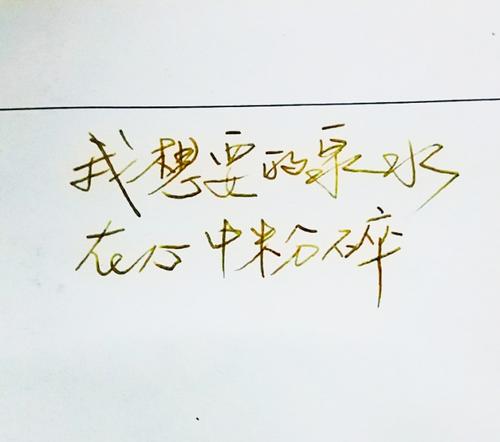 我想要的泉水
在心中粉碎